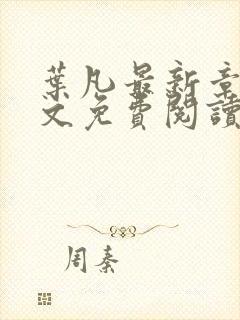 葉凡最新章
文免費閱讀
周秦